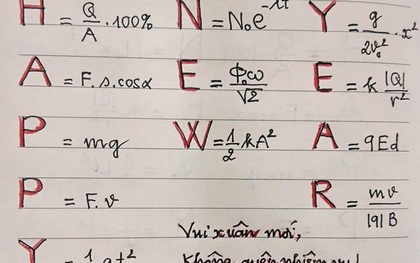 H = Q/A .100% N = N₀e^-λt Y = g/2v₀² .x²
A = F.s.cosα E = Φ₀ω/√2 E = k |Q|/r²
P = mg W = 1/2 kA² A = qEd
P = F.v R = mv/|q|B
Vui xuân mới,
Y = 1 at² Không quên nhiệm vụ!